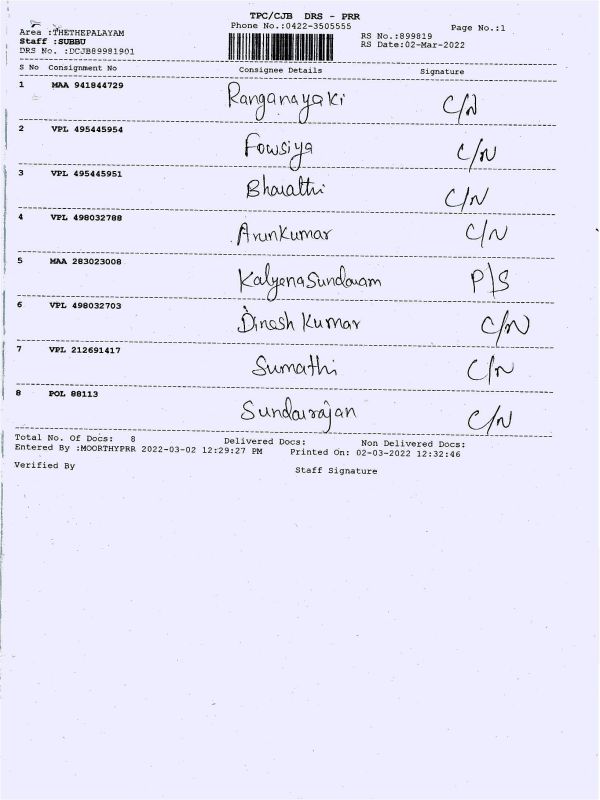 TPC/CJB DRS - PRR
Phone No.:0422-3505555 Page No.:1
Area :THETHEPALAYAM
Staff :SUBBU
DRS No. :DCJB89981901
RS No.:899819
RS Date:02-Mar-2022
S No Consignment No Consignee Details Signature
1 MAA 941844729 Ranganayaki C/N
2 VPL 495445954 Fowsiya C/N
3 VPL 495445951 Bharathi C/N
4 VPL 498032788 ArunKumar C/N
5 MAA 283023008 KalyenaSundaram P/S
6 VPL 498032703 Dinesh Kumar C/N
7 VPL 212691417 Sumathi C/N
8 POL 88113 Sundarrajan C/N
Total No. Of Docs: 8 Delivered Docs: Non Delivered Docs:
Entered By :MOORTHYPRR 2022-03-02 12:29:27 PM Printed On: 02-03-2022 12:32:46
Verified By Staff Signature